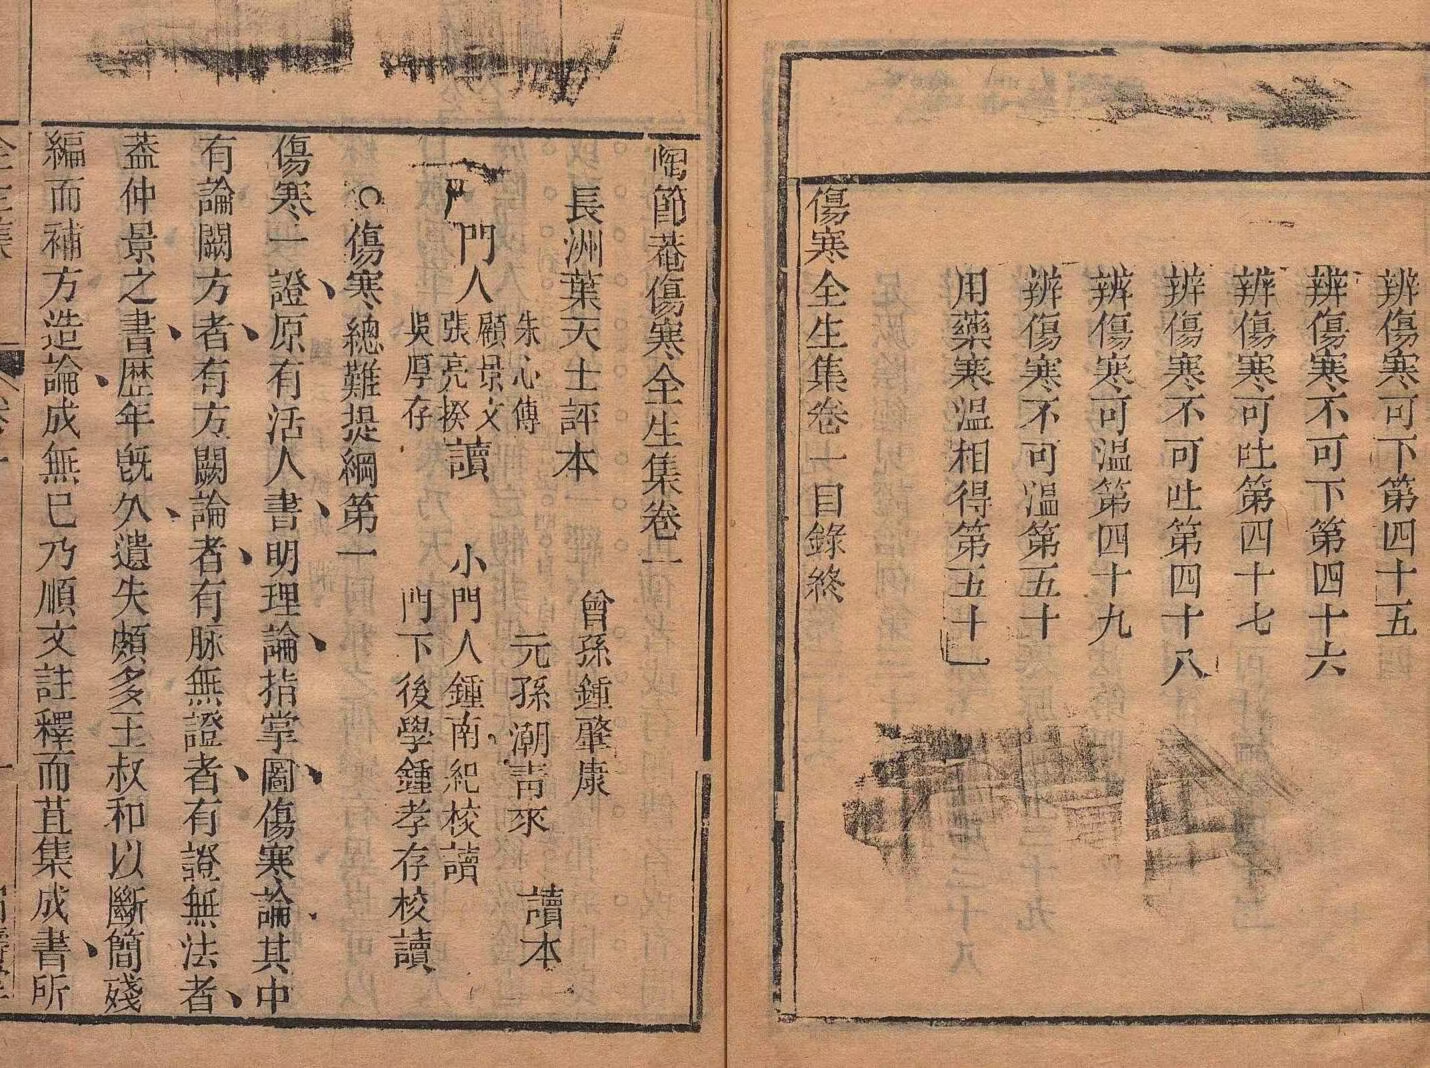 辨傷寒可下第四十五
辨傷寒不可下第四十六
辨傷寒可吐第四十七
辨傷寒不可吐第四十八
辨傷寒可溫第四十九
辨傷寒不可溫第五十
用藥寒溫相得第五十一
傷寒全生集卷一目錄終
陶節菴傷寒全生集卷一
長洲葉天士評本
曾孫鍾肇康
元孫潮青來
讀本
門人
朱心傳
顧景文
張亮揆
吳厚存
讀
小門人鍾南紀校讀
門下後學鍾孝存校讀
○傷寒總難提綱第一
傷寒一證原有活人書明理論指掌圖傷寒論其中
有論闕方者有方闕論者有脉無證者有證無法者
葢仲景之書歷年旣久遺失頗多王叔和以斷簡殘
編而補方造論成無已乃順文註釋而苴集成書所